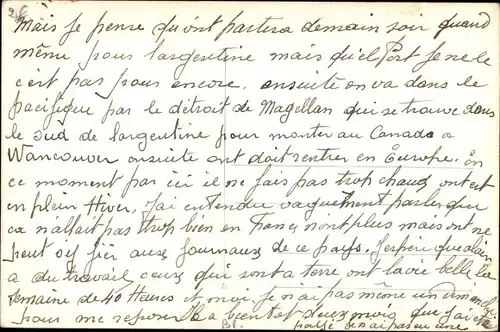 Mais je pense qu'ont partira demain soir quand
même pour l'argentine mais quel Port je ne le
c'ert pas pour encore. ensuite on va dans le
pacifique par le détroit de Magellan qui se trouve dans
le sud de l'argentine pour monter au Canada a
Wancouver ensuite ont doit rentrer en Europe. En
ce moment par ici il ne fais pas trop chaud ont est
en plein Hiver. J'ai entendu vaguement parler que
ca n'allait pas trop bien en France nont plus mais ont ne
peut s'y fier aux journaux de ce pays. J'espère que
a du travail ceux qui sont a terre ont la vie belle la
semaine de 40 Heures et moi je n'ai pas même un dimanche
pour me reposer a bientot deux mois que j'ai
je n'ai pas eu une